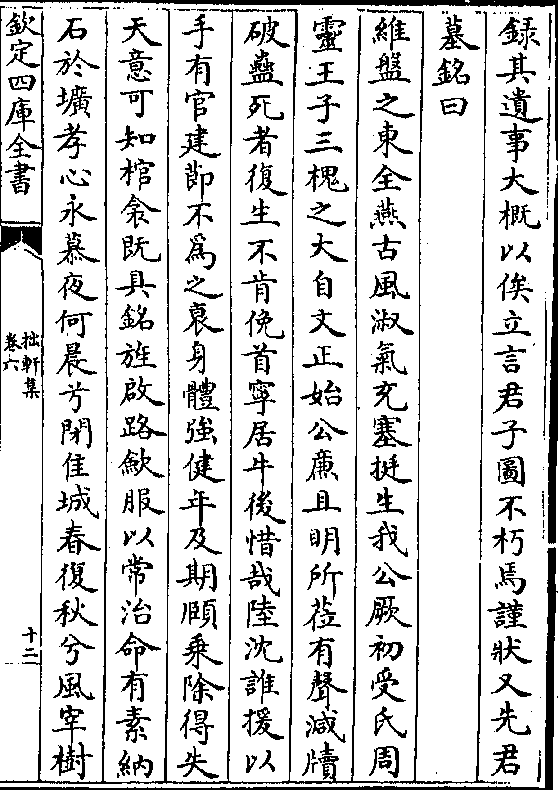 録其遺事大概以俟立言君子圖不朽焉謹狀又先君
墓銘曰
維盤之東全燕古風淑氣充塞挺生我公厥初受氏周
靈王子三槐之大自文正始公廉且明所莅有聲減牘
破蠱死者復生不肯俛首寧居牛後惜哉陸沈誰援以
手有官建節不為之衰身體強健年及期頤乘除得失
天意可知棺衾既具銘旌啟路歛服以常治命有素納
石於壙孝心永慕夜何晨兮閉佳城春復秋兮風宰樹
欽定四庫全書
拙軒集
卷六
十二